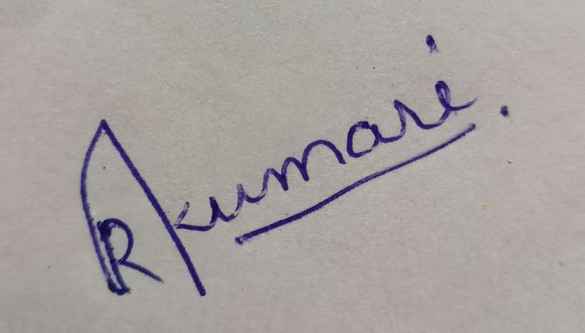 R Kumari.